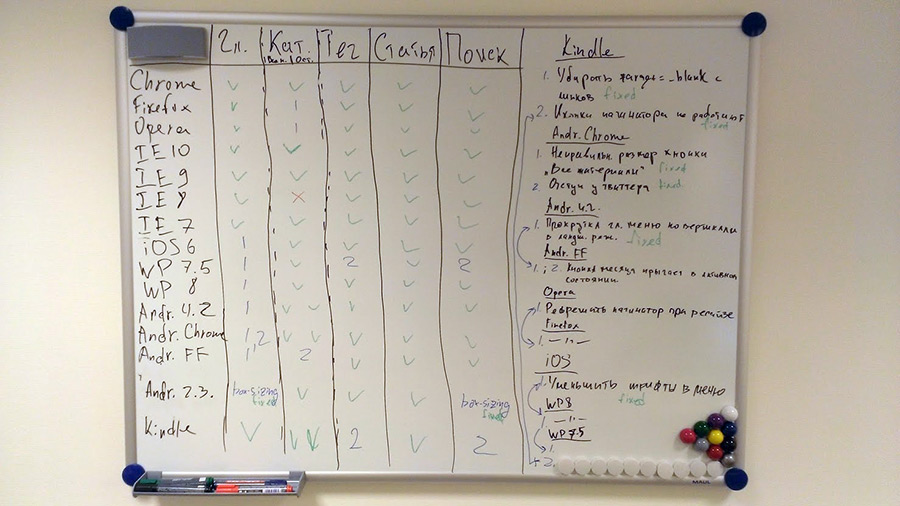 Гл. Кат. Тег Статья Поиск
Chrome ✓ ✓ ✓ ✓ ✓
Firefox ✓ 1 ✓ ✓ ✓
Opera ✓ 1 ✓ ✓ ✓
IE 10 ✓ ✓ ✓ ✓ ✓
IE 9 ✓ ✓ ✓ ✓ ✓
IE 8 ✓ × ✓ ✓ ✓
IE 7 ✓ ✓ ✓ ✓ ✓
iOS 6 1 ✓ ✓ ✓ ✓
WP 7.5 1 ✓ 2 ✓ 2
WP 8 1 ✓ ✓ ✓ ✓
Andr. 4.2 1 ✓ ✓ ✓ ✓ ✓
Andr. Chrome 1,2 ✓ ✓ ✓ ✓ ✓
Andr. FF 1,2 2 ✓ ✓ ✓
Andr. 2.3. box-sizing fixed ✓ ✓ ✓ box-sizing fixed
Kindle ✓ ✓✓ 2 ✓ 2
Kindle
1. Убирать target=_blank с
fixed
2. пагинатора не работают
fixed
Andr. Chrome
1. размер кнопки
„Все материалы" fixed
2. Отступ у твиттера fixed
Andr. 4.2
1. Прокрутка гл. меню по вертикали
в ландш. реж. fixed
Andr. FF
1. ; 2. Кнопка месяца в активном
состоянии.
Opera
1. пагинатор при ресайзе
Firefox
1. —"—
iOS
1. Уменьшить шрифты в меню
fixed
WP8
1. —"—
WP 7.5
1.
2.